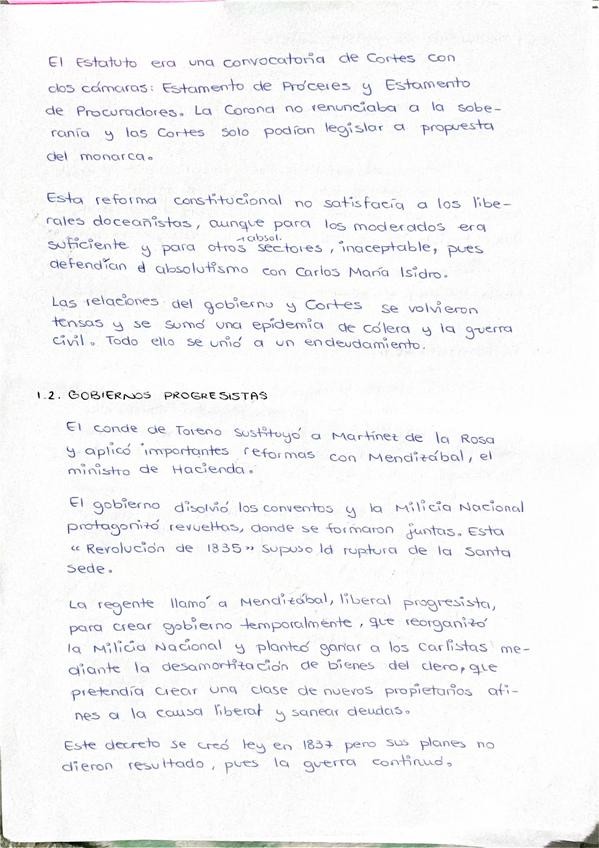 El Estatuto era una convocatoria de Cortes con
dos cámaras: Estamento de Próceres y Estamento
de Procuradores. La Corona no renunciaba a la sobe-
ranía y las Cortes solo podían legislar a propuesta
del monarca.
Esta reforma constitucional no satisfacía a los libe-
rales doceañistas, aunque para los moderados era
→absol.
suficiente y para otros sectores, inaceptable, pues
defendían el absolutismo con Carlos María Isidro.
Las relaciones del gobierno y Cortes se volvieron
tensas y se sumó una epidemia de cólera y la guerra
civil. Todo ello se unió a un endeudamiento.
1.2. GOBIERNOS PROGRESISTAS
El conde de Toreno sustituyó a Martínez de la Rosa
y aplicó importantes reformas con Mendizábal, el
ministro de Hacienda.
El gobierno disolvió los conventos y la Milicia Nacional
protagonizó revueltas, donde se formaron juntas. Esta
"Revolución de 1835" supuso la ruptura de la Santa
Sede.
La regente llamó a Mendizábal, liberal progresista,
para crear gobierno temporalmente, que reorganizó
la Milicia Nacional y planteó ganar a los Carlistas me-
diante la desamortización de bienes del clero, que
pretendía crear una clase de nuevos propietarios afi-
nes a la causa liberal y sanear deudas.
Este decreto se creó ley en 1837 pero sus planes no
dieron resultado, pues la guerra continuó.